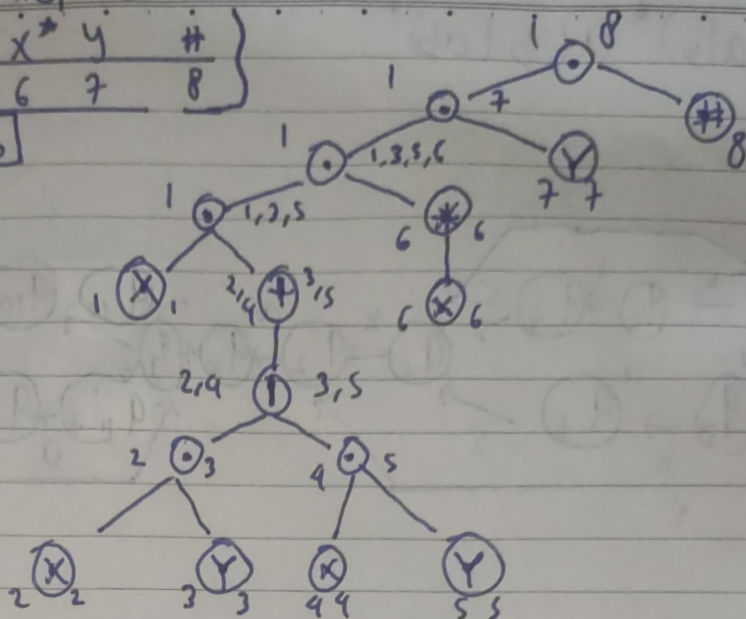 x* y #
6 7 8
1 8
1 • 7
#
8
1 • 1,3,5,6
Y
7 7
1 • 1,3,5
6 * 6
1 X 1
2,4 + 3,5
6 x 6
2,4 | 3,5
2 • 3
4 • 5
2 X 2
3 Y 3
4 x 4
5 Y 5